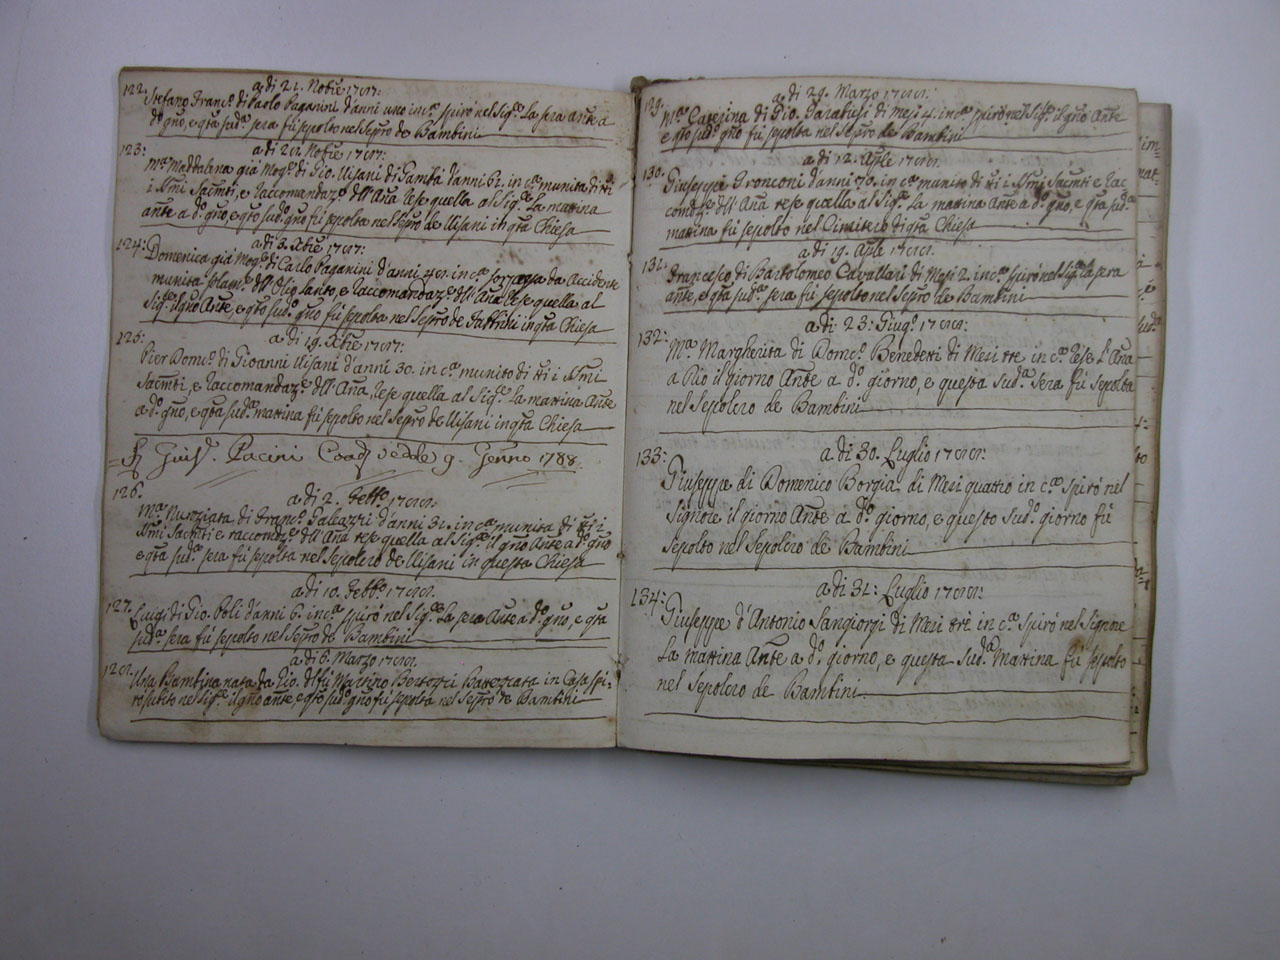 122. a di 21. Nobre 1787:
Stefano Franc.º di Paolo Paganini d'anni uno in c.ª spirò nel Sig.re La sera Ante a
d.º gno, e qta sud.ª sera fù sepolto nel Sepro de Bambini
123: a di 28. Nobre 1787:
M.ª Maddalena già Mog.e di Gio. Uisani di Gamba d'anni 62. in c.ª munita di tti
i SSmi Sacmti, e Raccomandaz.e dll' Ana rese quella al Sig.re La mattina
ante a d.º gno, e qto sud.º gno fù sepolta nel Sepro de Uisani in qta Chiesa
124: a di 3. Xbre 1787:
Domenica già Mog.e di Carlo Paganini d'anni in c.ª da Accidente
munita solam.te dll' Olio Santo, e Raccomandaz.e dll' Ana Rese quella al
Sig.re il gno Ante, e qto sud.º gno fù sepolta nel Sepro de in qta Chiesa
125: a di 19. Xbre 1787:
Pier Dom.co di Gioanni Uisani d'anni 30. in c.ª munito di tti i SSmi
Sacmti, e Raccomandaz.e dll' Ana, Rese quella al Sig.re La mattina Ante
a d.º gno, e qta sud.ª mattina fù sepolto nel Sepro de Uisani in qta Chiesa
Pacini vedde 9. Genno 1788.
126. a di 2. Febbº 1788:
M.ª Nunziata di Franc.º Galeazzi d'anni 32. in c.ª munita di tti i
SSmi Sacmti e raccomdz.e dll' Ana rese quella al Sig.re il gno Ante a d.º gno
e qta sud.ª sera fù sepolta nel Sepolcro de Uisani in questa Chiesa
a di 10. Febbº 1788.
127. Luigi di Gio. Poli d'anni 6. in c.ª spirò nel Sig.re La sera Ante a d.º gno, e qta
sud.ª sera fù sepolto nel Sepro de Bambini
a di 6. Marzo 1788.
128. Una Bambina nata da Gio. di Martino Bertozzi Battezzata in Casa spi-
rò subito nel Sig.re il gno ante, e qto sud.º gno fù sepolta nel Sepro de Bambini
a di 29. Marzo 1788:
129. M.ª Caterina di Gio. Garabusi di Mesi 4. in c.ª spirò nel Sig.re il gno Ante
e qto sud.º gno fù sepolta nel Sepro de Bambini
a di 12. Aple 1788.
130. Giuseppe Tronconi d'anni 70. in c.ª munito di tti i SSmi Sacmti e Rac
comdz.e dll' Ana rese quella al Sig.re La mattina Ante a d.º gno, e qta sud.ª
mattina fù sepolto nel Cimitero di qta Chiesa
a di 19. Aple 1788.
131. Francesco di Bartolomeo Cavallari di Mesi 2. in c.ª spirò nel Sig.re la sera
ante, e qta sud.ª sera fù sepolto nel Sepro de Bambini
a di 23: Giug.º 1788:
132: M.ª Margherita di Dom.co Benedetti di Mesi tre in c.ª Rese L'Ana
a Dio il giorno Ante a d.º giorno, e questa Sud.ª Sera fù Sepolta
nel Sepolcro de Bambini
a di 30. Luglio 1788:
133: Giuseppe di Domenico Borgia di Mesi quattro in c.ª Spirò nel
Signore il giorno Ante a d.º giorno, e questo Sud.º giorno fù
Sepolto nel Sepolcro de Bambini
a di 31: Luglio 1788:
134: Giuseppe d'Antonio Sangiorgi di Mesi trè in c.ª Spirò nel Signore
La mattina Ante a d.º giorno, e questa Sud.ª Mattina fù Sepolto
nel Sepolcro de Bambini